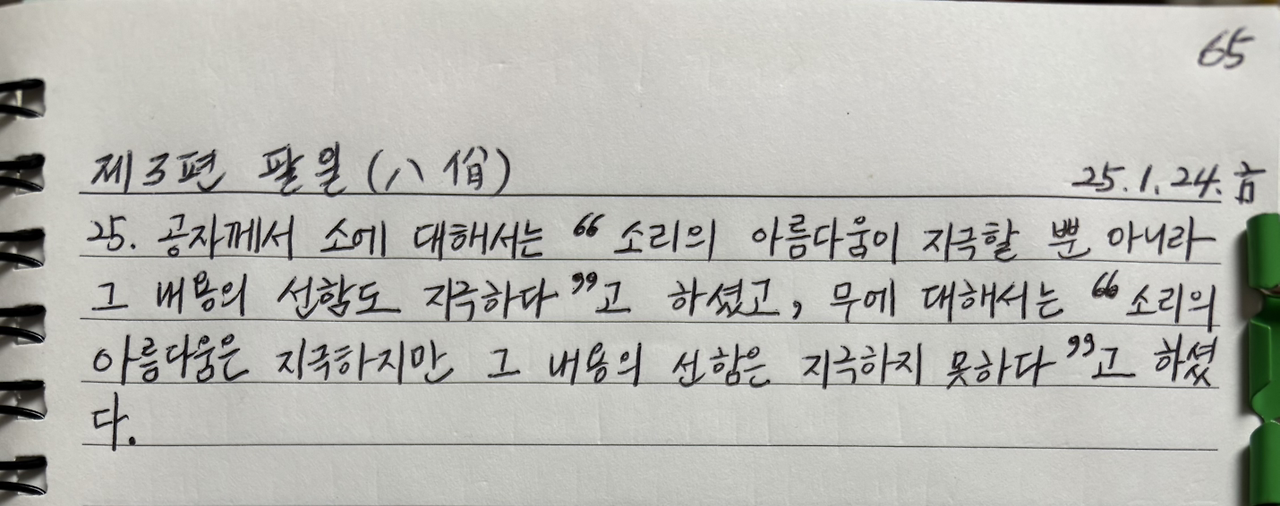 65
제3편 팔일(八佾) 25.1.24. 금
25. 공자께서 소에 대해서는 “소리의 아름다움이 지극할 뿐 아니라
그 내용의 선함도 지극하다”고 하셨고, 무에 대해서는 “소리의
아름다움은 지극하지만 그 내용의 선함은 지극하지 못하다”고 하셨
다.